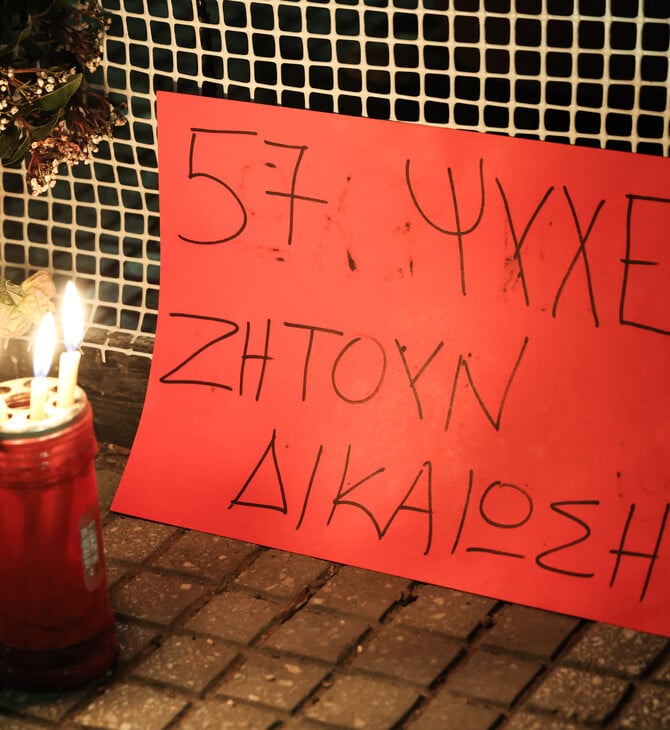 57 ΨΥΧΕ
ΖΗΤΟΥΝ
ΔΙΚΑΙΩΣΗ